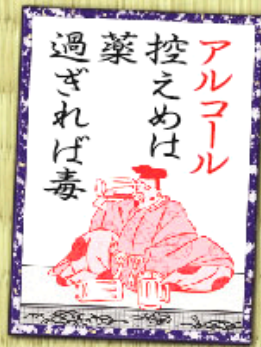 アルコール
控えめは
薬
過ぎれば毒